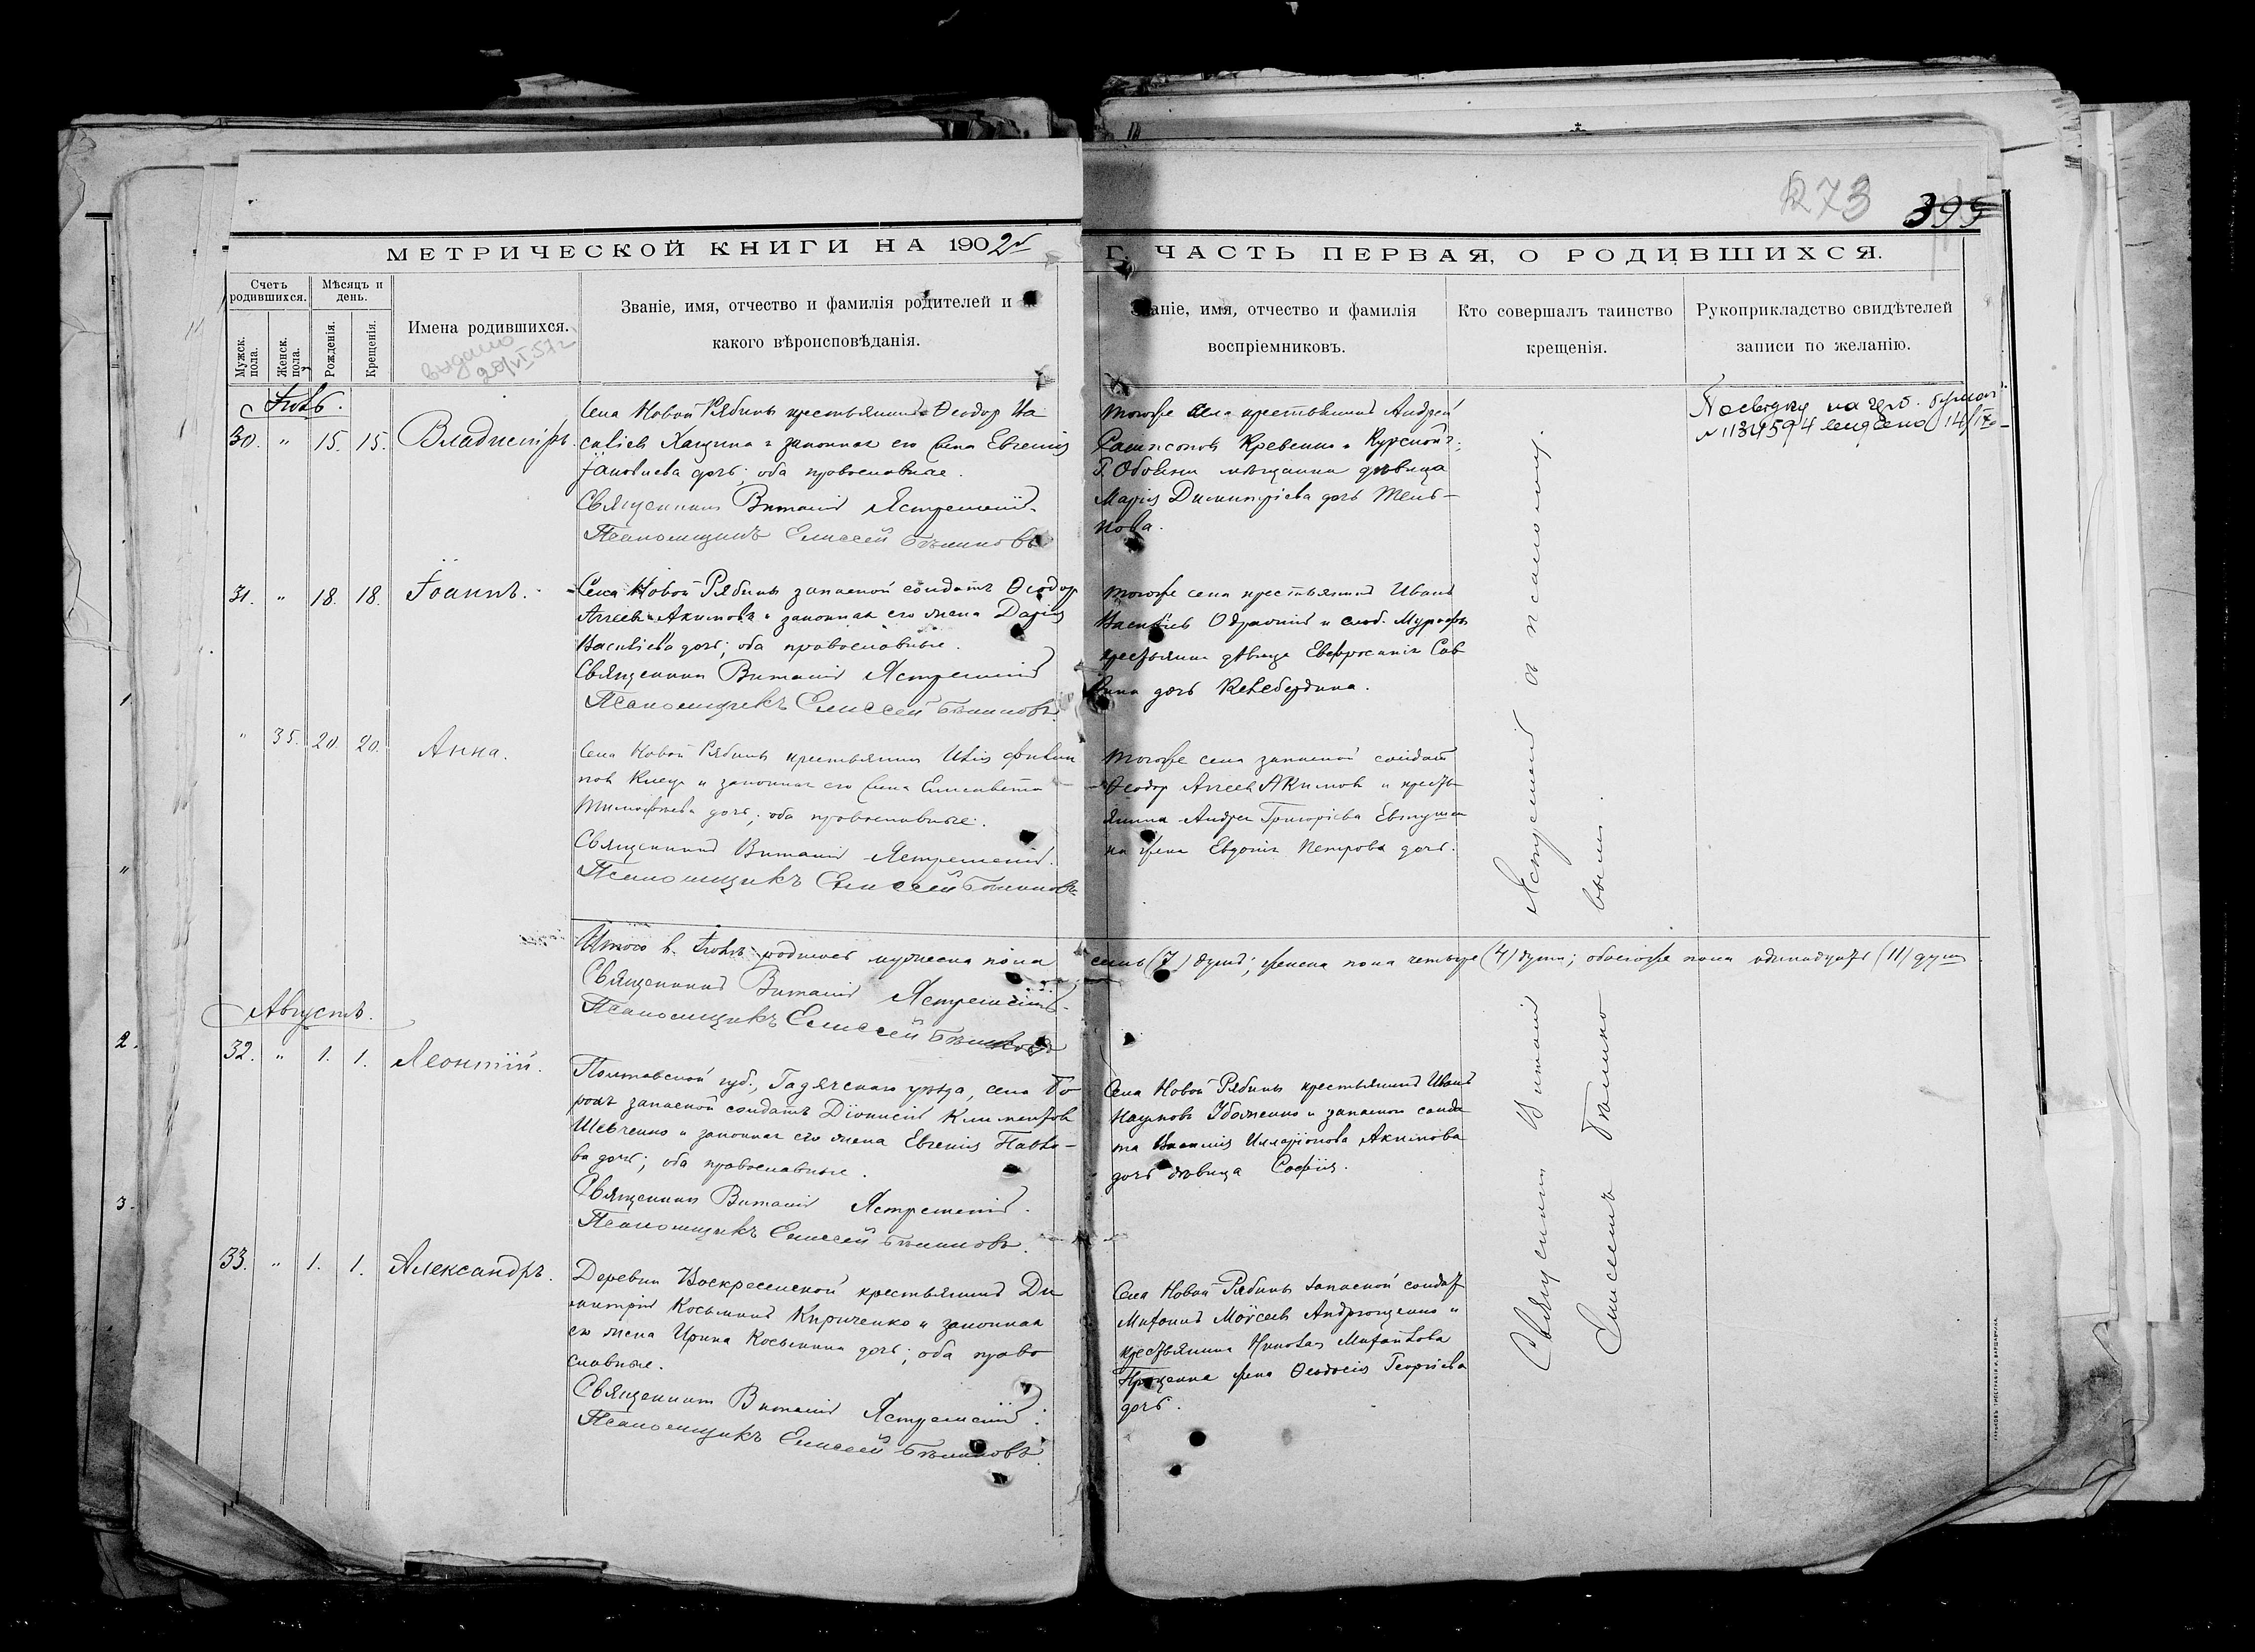 273
399
МЕТРИЧЕСКОЙ КНИГИ НА 1902
Г. ЧАСТЬ ПЕРВАЯ, О РОДИВШИХСЯ.
Счетъ родившихся.
Мужск. пола.
Женск. пола.
Мѣсяцъ и день.
Рожденія.
Крещенія.
Имена родившихся.
выдано
20/VI 57 г
Званіе, имя, отчество и фамилія родителей и
какого вѣроисповѣданія.
Званіе, имя, отчество и фамилія
воспріемниковъ.
Кто совершалъ таинство
крещенія.
Рукоприкладство свидѣтелей
записи по желанію.
Іюль.
30. " 15. 15. Владиміръ.
Села Новой Рябины крестьянинъ Ѳеодор Ва
сильевъ и законная его жена Евгенія
Іаковлева дочь; оба православные.
Священникъ Виталій Ястремскій.
Псаломщикъ Елиссей
тогоже села крестьянинъ Андрей
Курской г.
Г. Обояни мѣщанка дѣвица
Марія Димитріева дочь
нова.
на герб. бумаг
№ 113459
31. " 18. 18. Іоаннъ.
Села Новой Рябины запасной солдатъ Ѳеодор
Алексѣевъ Акимовъ и законная его жена Дарія
Васильева дочь; оба православные.
Священникъ Виталій Ястремскій
Псаломщикъ Елиссей
тогоже села крестьянинъ Иванъ
Васильевъ и слоб. Мурафы
крестьянка дѣвица Евфросинія Сав
вина дочь
" 35. 20. 20. Анна.
Села Новой Рябины крестьянинъ Илія Филип
повъ и законная его жена Елисавета
Тимофеева дочь; оба православные.
Священникъ Виталій Ястремскій.
Псаломщикъ Елиссей
тогоже села запасной солдатъ
Ѳеодор Алексѣевъ Акимовъ и кресть
янина Андрея Григоріева Евтушен
ка жена Евдокія Петрова дочь.
Итого в Іюлѣ родилось мужеска пола
семь (7) душъ; женска пола четыре (4) души; обоегоже пола одинадцать (11) душъ
Священникъ Виталій Ястремскій
Псаломщикъ Елиссей
Августъ.
32. " 1. 1. Леонтій.
Полтавской губ., Гадячскаго уѣзда, села
запасной солдатъ Діонисій Климентовъ
Шевченко и законная его жена Евгенія Павло-
ва дочь; оба православные.
Священникъ Виталій Ястремскій.
Псаломщикъ Елиссей
Села Новой Рябины крестьянинъ Иванъ
Наумовъ и запаснаго солда
та Василія Илларіонова Акимова
дочь дѣвица Софія.
33. " 1. 1. Александръ.
Деревни Воскресенской крестьянинъ Ди
митрій Косьминъ Кириченко и законная
его жена Ирина Косьмина дочь; оба право
славные.
Священникъ Виталій Ястремскій.
Псаломщикъ Елиссей
Села Новой Рябины запасной солдатъ
Митрофанъ Моѵсеевъ Андрющенко и
крестьянина Николая Михайлова
Проценка жена Ѳеодосія Георгіева
дочь.
Священникъ Виталій Ястремскій и псаломщикъ
Елиссей
1
2.
3.